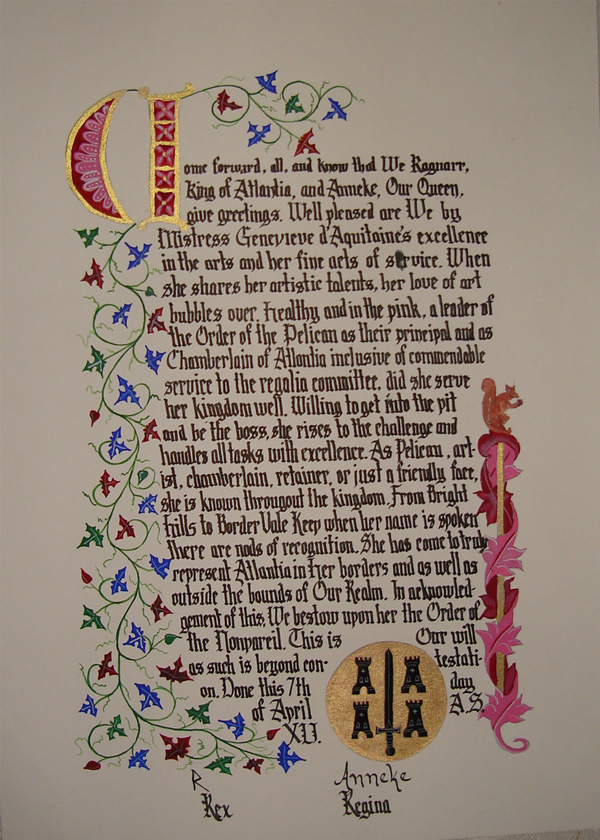 Come forward, all, and know that We Ragnarr,
King of Atlantia, and Anneke, Our Queen,
give greetings. Well pleased are We by
Mistress Genevieve d'Aquitaine's excellence
in the arts and her fine acts of service. When
she shares her artistic talents, her love of art
bubbles over. Healthy, and in the pink, a leader of
the Order of the Pelican as their principal and as
Chamberlain of Atlantia inclusive of commendable
service to the regalia committee, did she serve
her kingdom well. Willing to get into the pit
and be the boss, she rises to the challenge and
handles all tasks with excellence. As Pelican, art-
ist, chamberlain, retainer, or just a friendly face,
she is known througout the kingdom. From Bright
Hills to Border Vale Keep when her name is spoken
there are nods of recognition. She has come to truly
represent Atlantia in Her borders and as well as
outside the bounds of Our Realm. In acknowled-
gement of this, We bestow upon her the Order of
the Nonpareil. This is Our will
as such is beyond con- testati-
on. Done this 7th day
of April A.S.
XLI.
R Anneke
Rex Regina